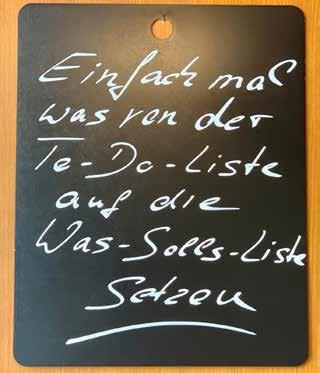 Einfach mal
was von der
To-Do-Liste
auf die
Was-Solls-Liste
Setzen